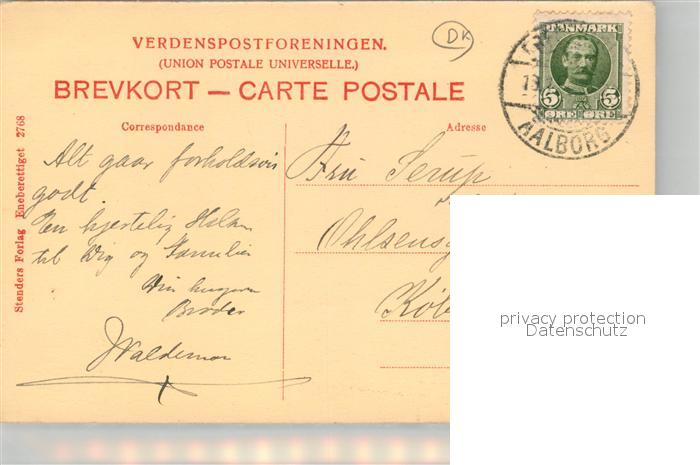 VERDENSPOSTFORENINGEN.
(UNION POSTALE UNIVERSELLE.)
BREVKORT — CARTE POSTALE
DK
DANMARK
5 5
ØRE ØRE
AALBORG
Correspondance
Adresse
Stenders Forlag Eneberettiget 2768
Alt gaar forholdsvis
godt.
En hjertelig Hilsen
til Dig og Familien
Din
Broder
Valdemar
Fru Serup
Ohlsensg
Køb
privacy protection
Datenschutz